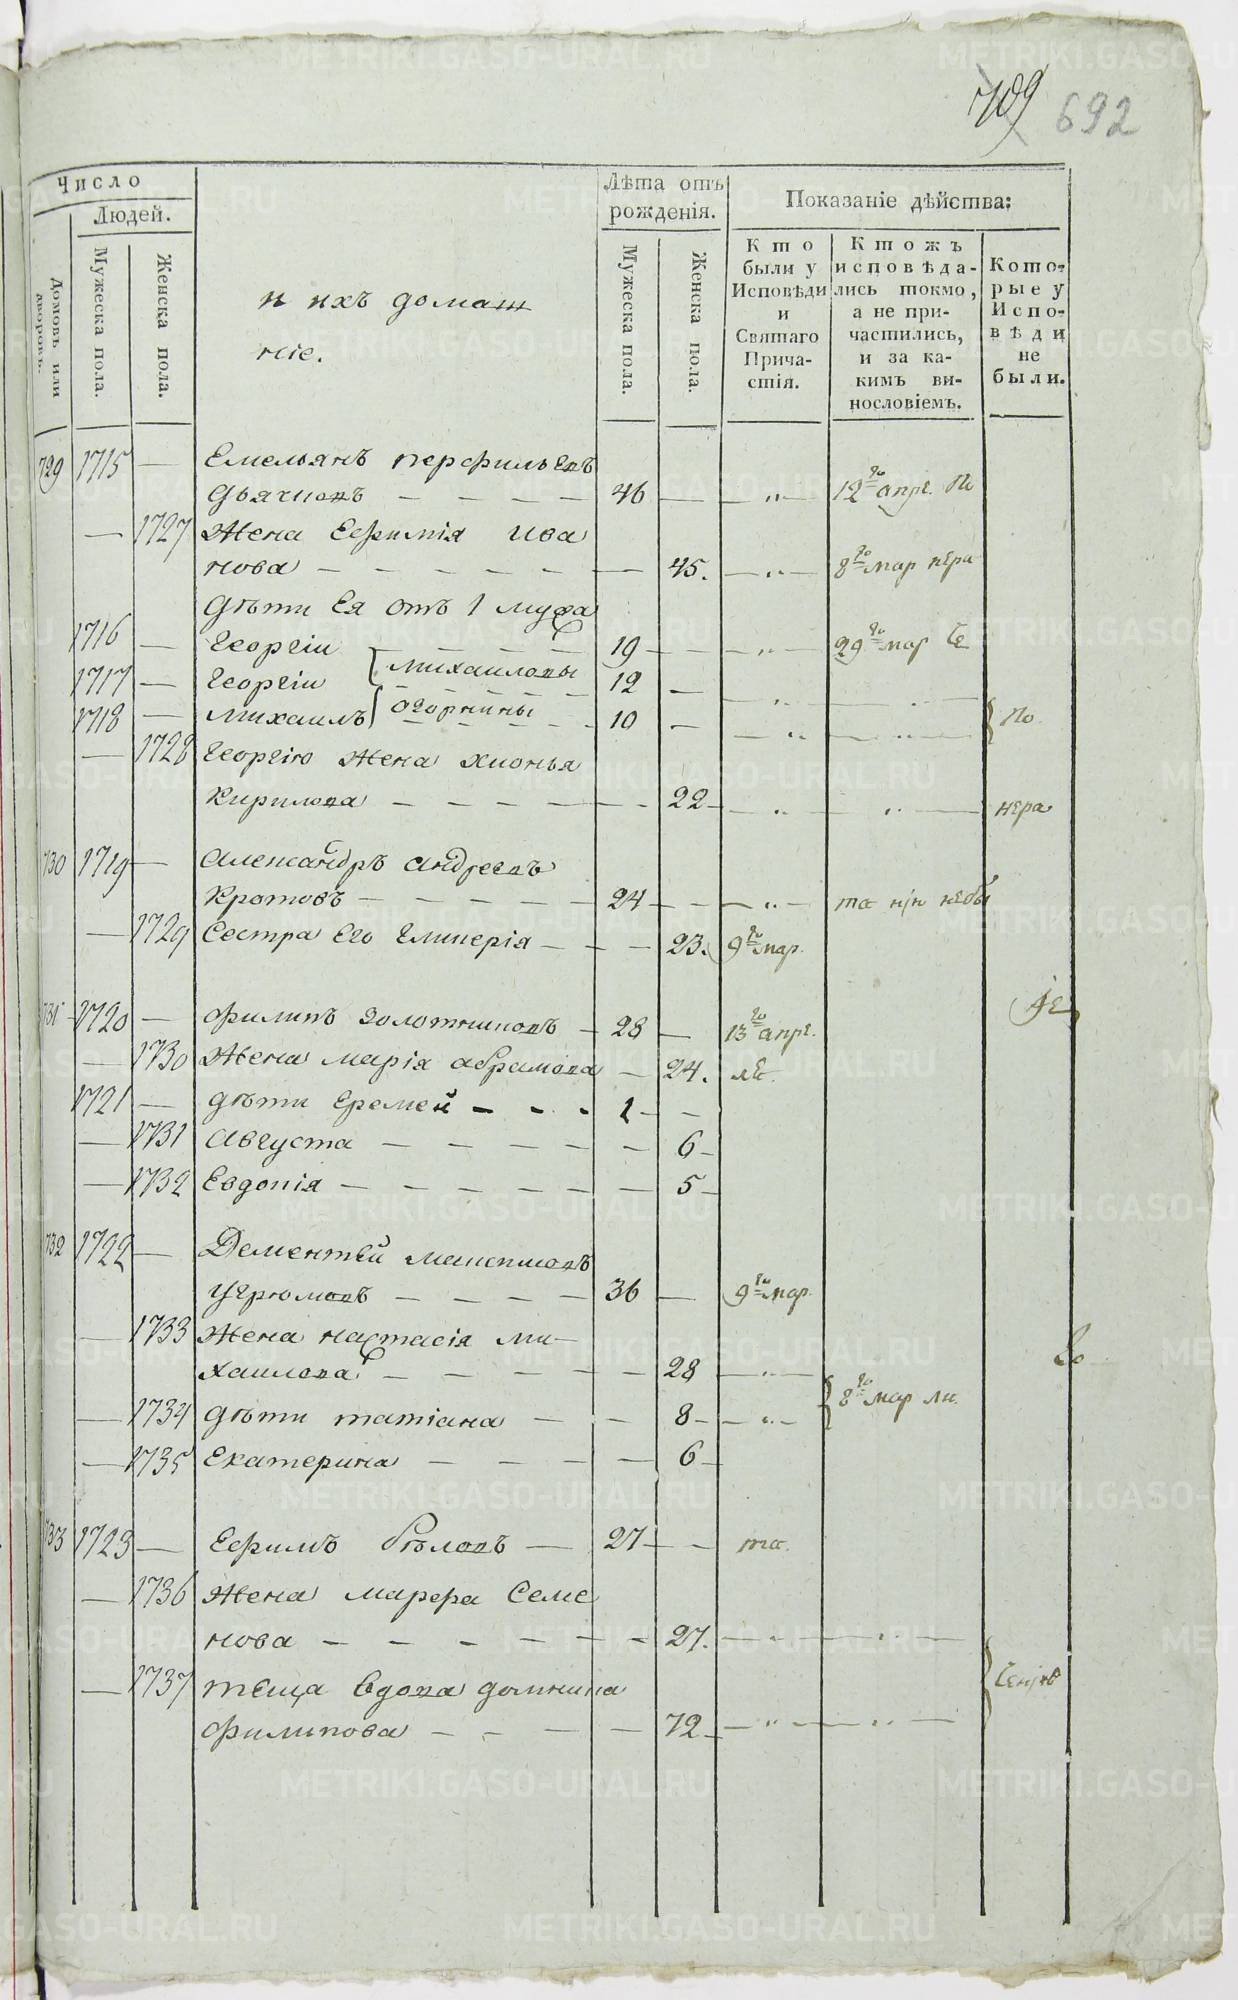 709 692
Число
Людей.
Домовъ или дворовъ.
Мужеска пола.
Женска пола.
и ихъ домаш
ніе.
Лѣта отъ
рожденія.
Мужеска пола.
Женска пола.
Показаніе дѣйства:
Кто
были у
Исповѣди
и
Святаго
Прича-
стія.
Ктожъ
исповѣда-
лись токмо,
а не при-
частились,
и за ка-
кимъ ви-
нословіемъ.
Кото-
рые у
Испо-
вѣди
не
были.
729 1715 — Емельянъ перфильевъ
Дьячковъ — — — — 46 — — „ — 12го апре. По
— 1727 Жена Ефимія Ива
нова — — — — — — — 45. — „ — 8го мар нера
Дѣти Ея отъ 1 мужа
1716 — Георгіи — — — — 19 — — — „ — 29го мар Че
1717 — Георгіи Михаиловы 12 — — „ —
1718 — Михаилъ Огорнины 10 — — „ — По
— 1728 Георгію жена Хионья
Кирилова — — — — — — 22 — „ — „ — нера
730 1719 — Александръ Андреевъ
Кротовъ — — — — — 24 — — — „ — та
— 1729 Сестра Его Гликерія — — — 23. 9го мар.
731 1720 — Филипъ Золотниковъ — 28 — 13го апре.
— 1730 Жена Марія Абрамова — 24. ле.
1721 — Дѣти Еремей - - - 1 — —
— 1731 Августа — — — — — — 6 —
— 1732 Евдокія — — — — — — — 5 —
732 1722 — Дементей Максимовъ
Угрюмовъ — — — — 36 — 9го мар.
— 1733 Жена Настасія Ми-
хаилова — — — — — — 28 — „ —
8го мар ли.
— 1734 Дѣти Татіана — — — 8 — — „ —
— 1735 Екатерина — — — — 6 —
733 1723 — Ефимъ Бѣловъ — 27 — — та.
— 1736 Жена Марфа Семе
нова — — — — — — — 27. — „ — „ —
— 1737 теща вдова Домникиа
Филипова — — — — — 72 — „ — „ —
METRIKI.GASO-URAL.RU